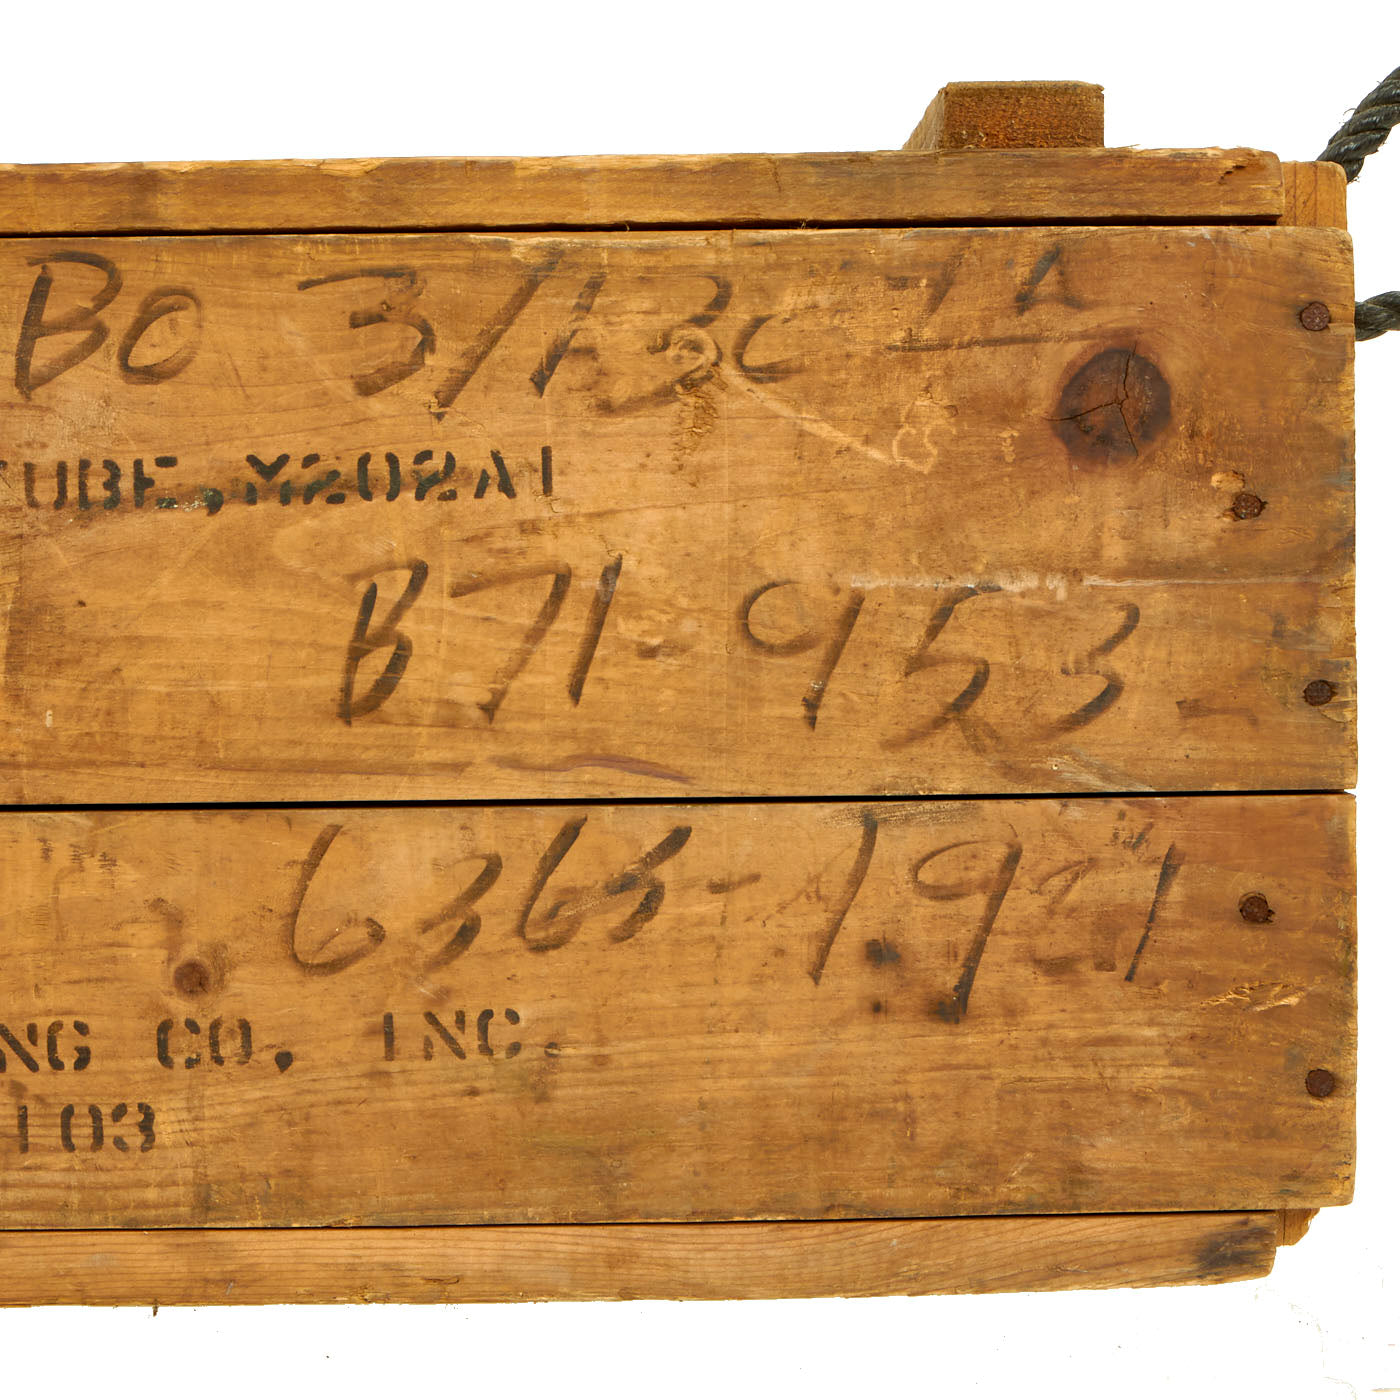 Bo 3/13
UBE, M202A1
B71-953
6363-19
NG CO, INC.
103